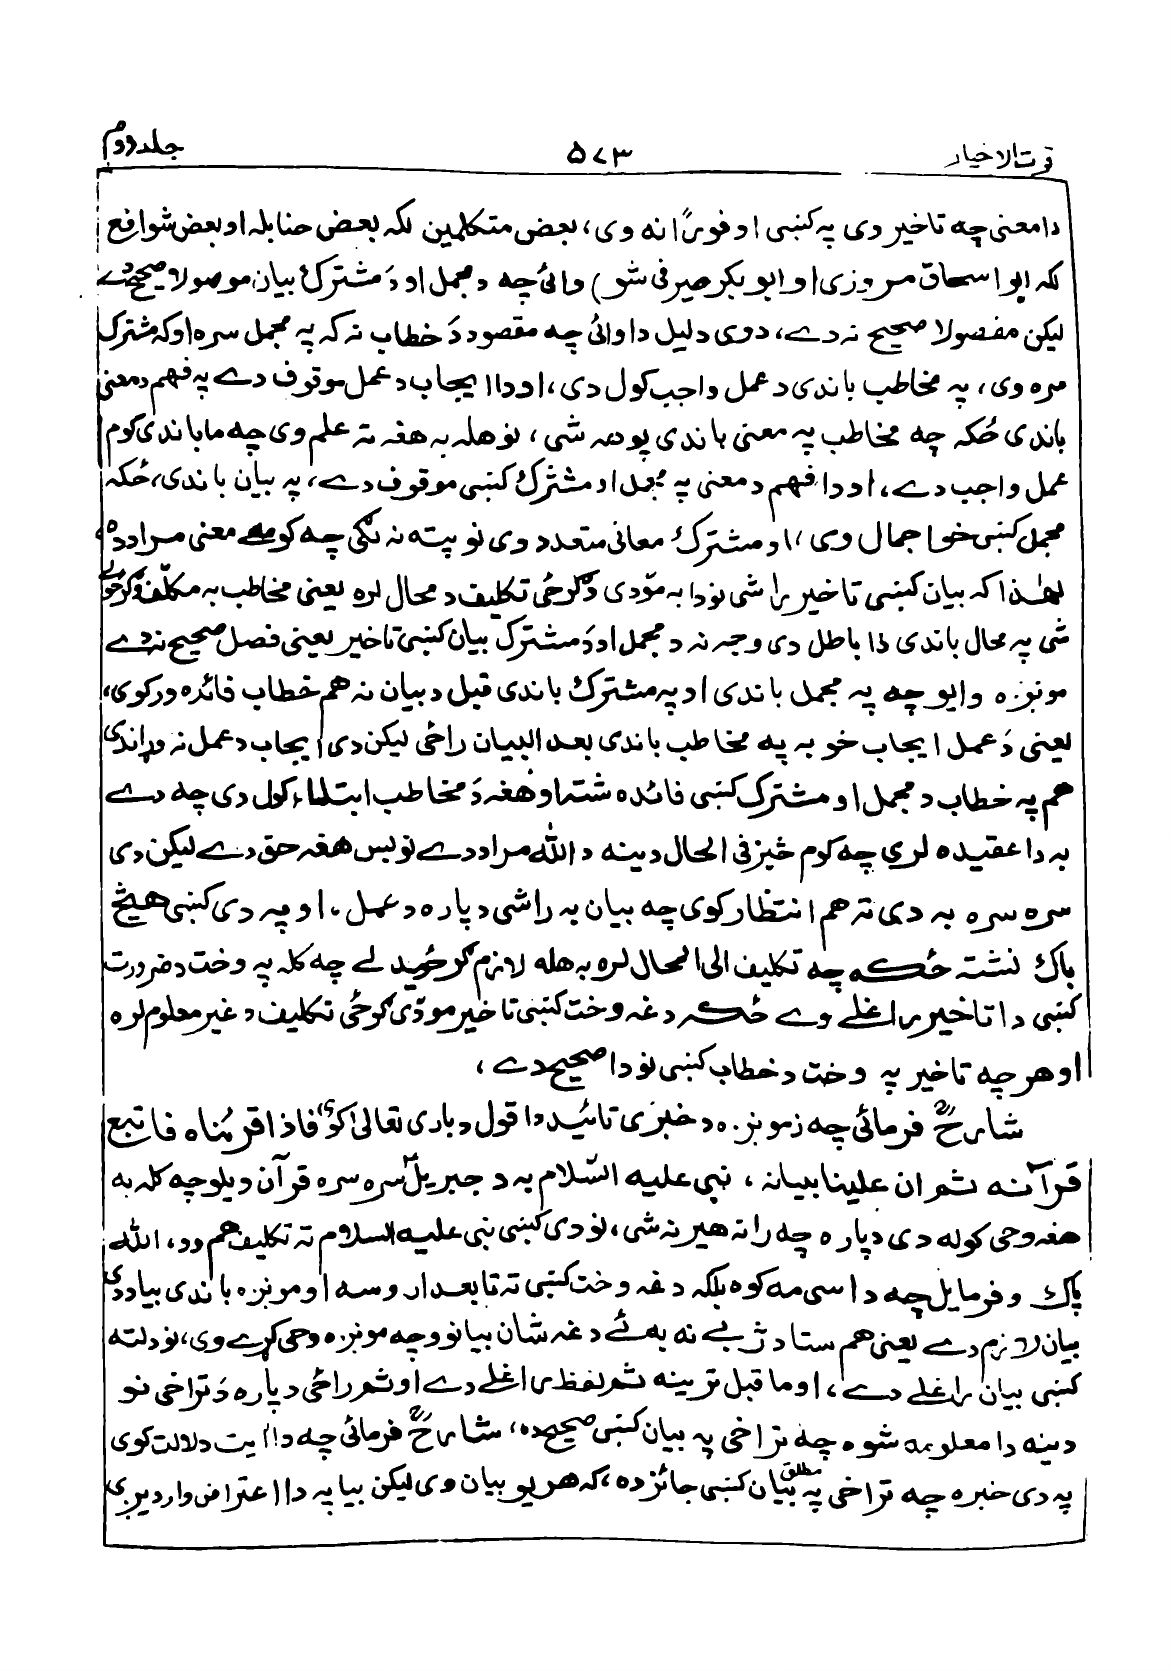 قرت الاخیار ۵۷۳ جلد دوم
دا معنی چه تاخیر وی په کښی او فورًا نه وی، بعض متکلمین لکه بعض حنابله او بعض شوافع
لکه ابو اسحاق مروزی او ابو بکر صیرفی شو) وائی چه د مجمل او دَ مشترک بیان موصولا صحیح دے
لیکن مفصولا صحیح نه دے، دوی دلیل دا وائی چه مقصود دَ خطاب نه که په مجمل سره او که مشترک
سره وی، په مخاطب باندی د عمل واجب کول دی، او دا ایجاب د عمل موقوف دے په فهم د معنی
باندی ځکه چه مخاطب په معنی باندی پوهه شی، نو هله به هغه ته علم وی چه ما باندی کوم
عمل واجب دے، او دا فهم د معنی په مجمل او مشترک کښی موقوف دے، په بیان باندی، ځکه
مجمل کښی خو اجمال وی، او مشترک معانی متعدد وی نو پته نه لگی چه کومه معنی مراد ده
لهٰذا که بیان کښی تاخیر راشی نو دا به مؤدی وگرځی تکلیف د محال لره یعنی مخاطب به مکلّف وگرځولے
شی په محال باندی دا باطل دی وجه نه د مجمل او دَ مشترک بیان کښی تاخیر یعنی فصل صحیح نه دے
مونږه وایو چه په مجمل باندی او په مشترک باندی قبل د بیان نه هم خطاب فائده ورکوی،
یعنی دَ عمل ایجاب خو به په مخاطب باندی بعد البیان راځی لیکن دی ایجاب د عمل نه وړاندی
هم په خطاب د مجمل او مشترک کښی فائده شته او هغه دَ مخاطب ابتلاء کول دی چه دے
به دا عقیده لری چه کوم څیز فی الحال دینه د اللّٰه مراد دے نو بس هغه حق دے لیکن دی
سره سره به دی ته هم انتظار کوی چه بیان به راشی دپاره د عمل، او په دی کښی هیڅ
باک نشته ځکه چه تکلیف الی المحال لره به هله لازم گرځیدلے چه کله په وخت د ضرورت
کښی دا تاخیر راغلے وے ځکه دغه وخت کښی تاخیر مودّی گرځی تکلیف د غیر معلوم لره
او هر چه تاخیر په وخت د خطاب کښی نو دا صحیح دے،
شارحؒ فرمائی چه زمونږه د خبری تائید دا قول د باری تعالیٰ کوی فاذا قرءناه فاتبع
قرآنه ثم ان علینا بیانه، نبی علیه السّلام به د جبریلؑ سره سره قرآن ویلو چه کله به
هغه وحی کوله دی دپاره چه رانه هیر نه شی، نو دی کښی نبی علیه السلام ته تکلیف هم وو، اللّٰه
پاک وفرمایل چه داسی مه کوه بلکه دغه وخت کښی ته تابعدار وسه او مونږه باندی بیا ددی
بیان لازم دے یعنی هم ستا د ژبے نه به ئے دغه شان بیانوو چه مونږه وحی کړے وی، نو دلته
کښی بیان راغلے دے، او ما قبل ترینه ثم لفظ راغلے دے او ثم راځی دپاره دَ تراخی نو
دینه دا معلومه شوه چه تراخی په بیان کښی صحیح ده، شارحؒ فرمائی چه دا آیت دلالت کوی
په دی خبره چه تراخی په مطلق بیان کښی جائز ده، که هر یو بیان وی لیکن بیا په دا اعتراض واردیږی